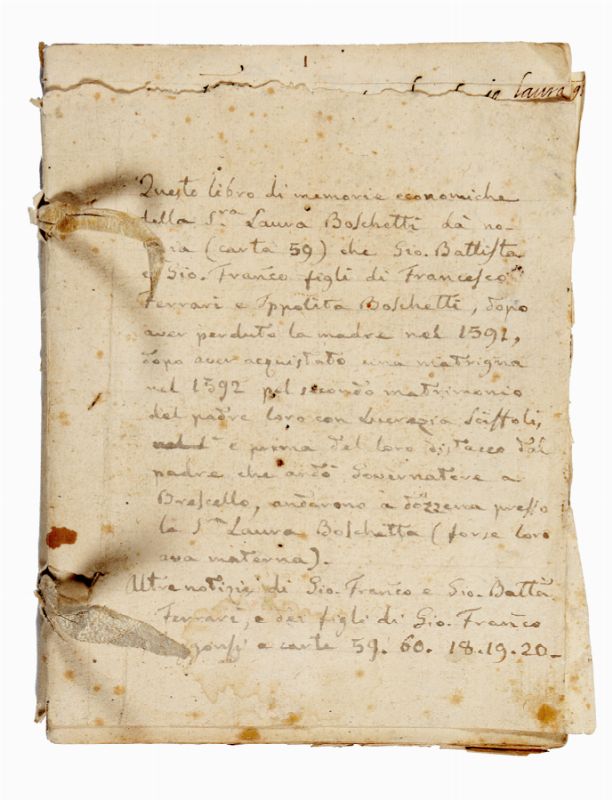 laura
Questo libro di memorie economiche
della S.ra Laura Boschetti dà no-
zia (carta 59) che Gio. Battista
e Gio. Franco figli di Francesco
Ferrari e Ippolita Boschetti, dopo
aver perduto la madre nel 1591,
dopo aver acquistato una matrigna
nel 1592 pel secondo matrimonio
del padre loro con Lucrezia Scoffoli,
e prima del loro distacco dal
padre che andò Governatore a
Brescello, andarono a dozzena presso
la S.ra Laura Boschetta (forse loro
ava materna).
Altre notizie di Gio. Franco e Gio. Batta
Ferrari, e dei figli di Gio. Franco
a carte 59. 60. 18. 19. 20-